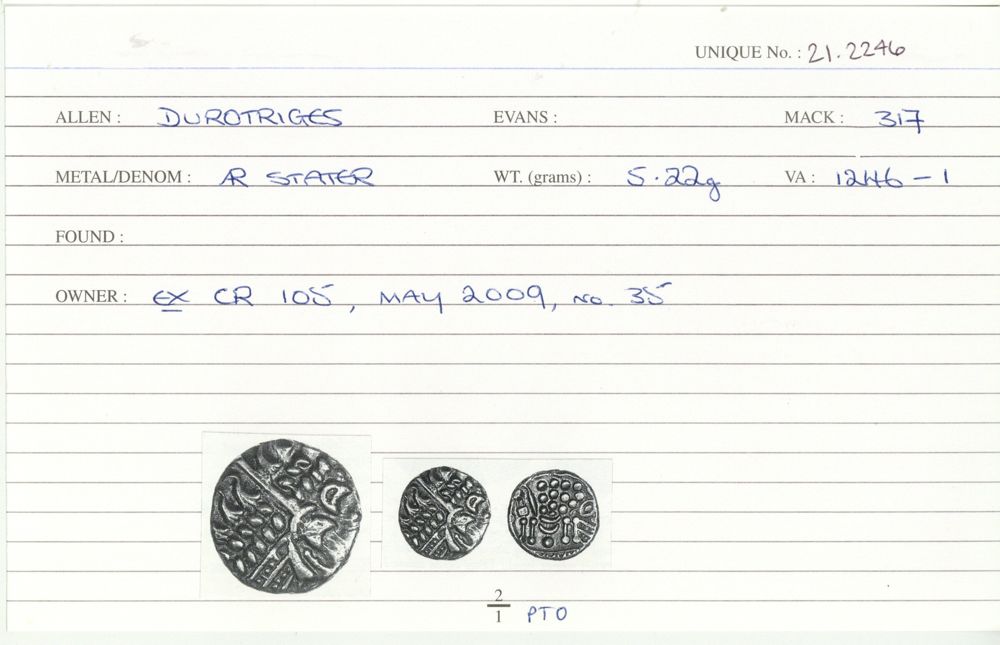 UNIQUE No. : 21.2246
ALLEN : DUROTRIGES EVANS : MACK : 317
METAL/DENOM : AR STATER WT. (grams) : 5.22g VA : 1246-1
FOUND :
OWNER : ex CR 105, MAY 2009, no. 35
2
1 PTO